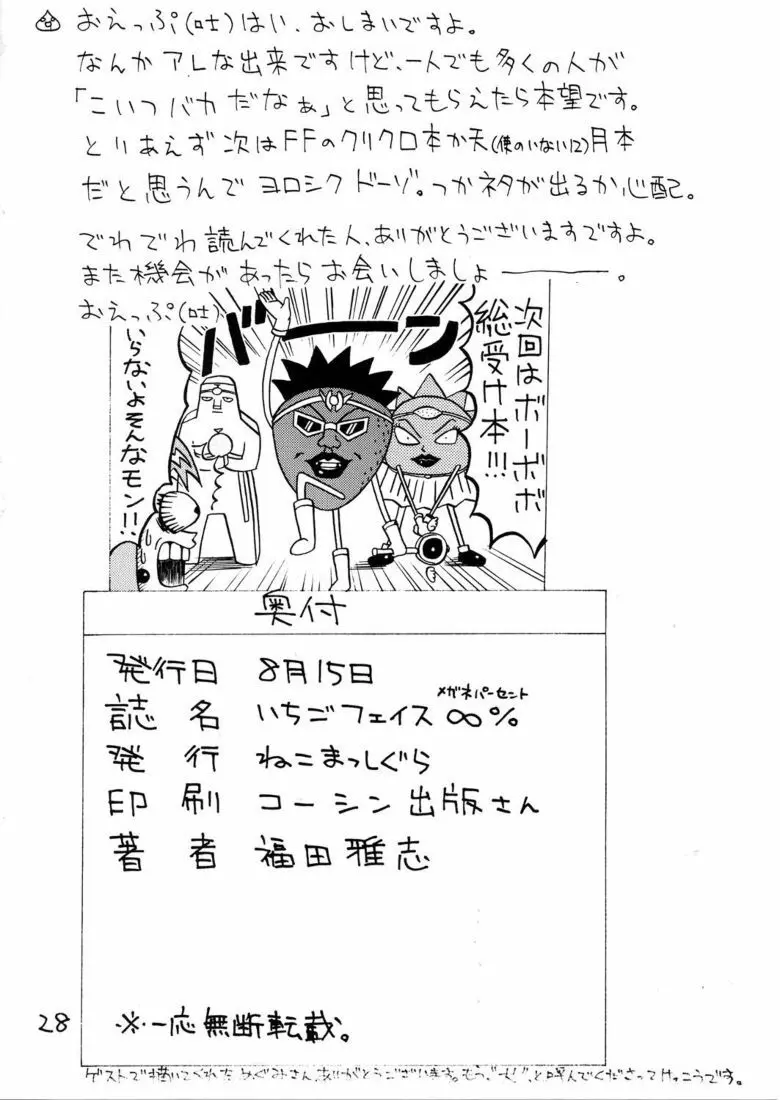 おえっぷ(吐)はい、おしまいですよ。
なんか アレな出来ですけど、一人でも多くの人が
「こいつバカだなぁ」と思ってもらえたら本望です。
とりあえず次はFFのクリクロ本か天(使のいない12)月本
だと思うんで ヨロシク ドーゾ。つかネタが出るか心配。
でわでわ 読んでくれた人、ありがとうございますですよ。
また機会があったらお会いしましょ―――。
おえっぷ(吐)
次回はボーボボ
総受け本!!!
バーン
いらないよそんなモン!!
奥付
発行日 8月15日
メガネパーセント
誌名 いちごフェイス ∞%
発行 ねこまっしぐら
印刷 コーシン出版さん
著者 福田雅志
※一応無断転載。
28
ゲストで描いてくれためぐみさん、ありがとうございます。もう、と呼んでくださってけっこうです。